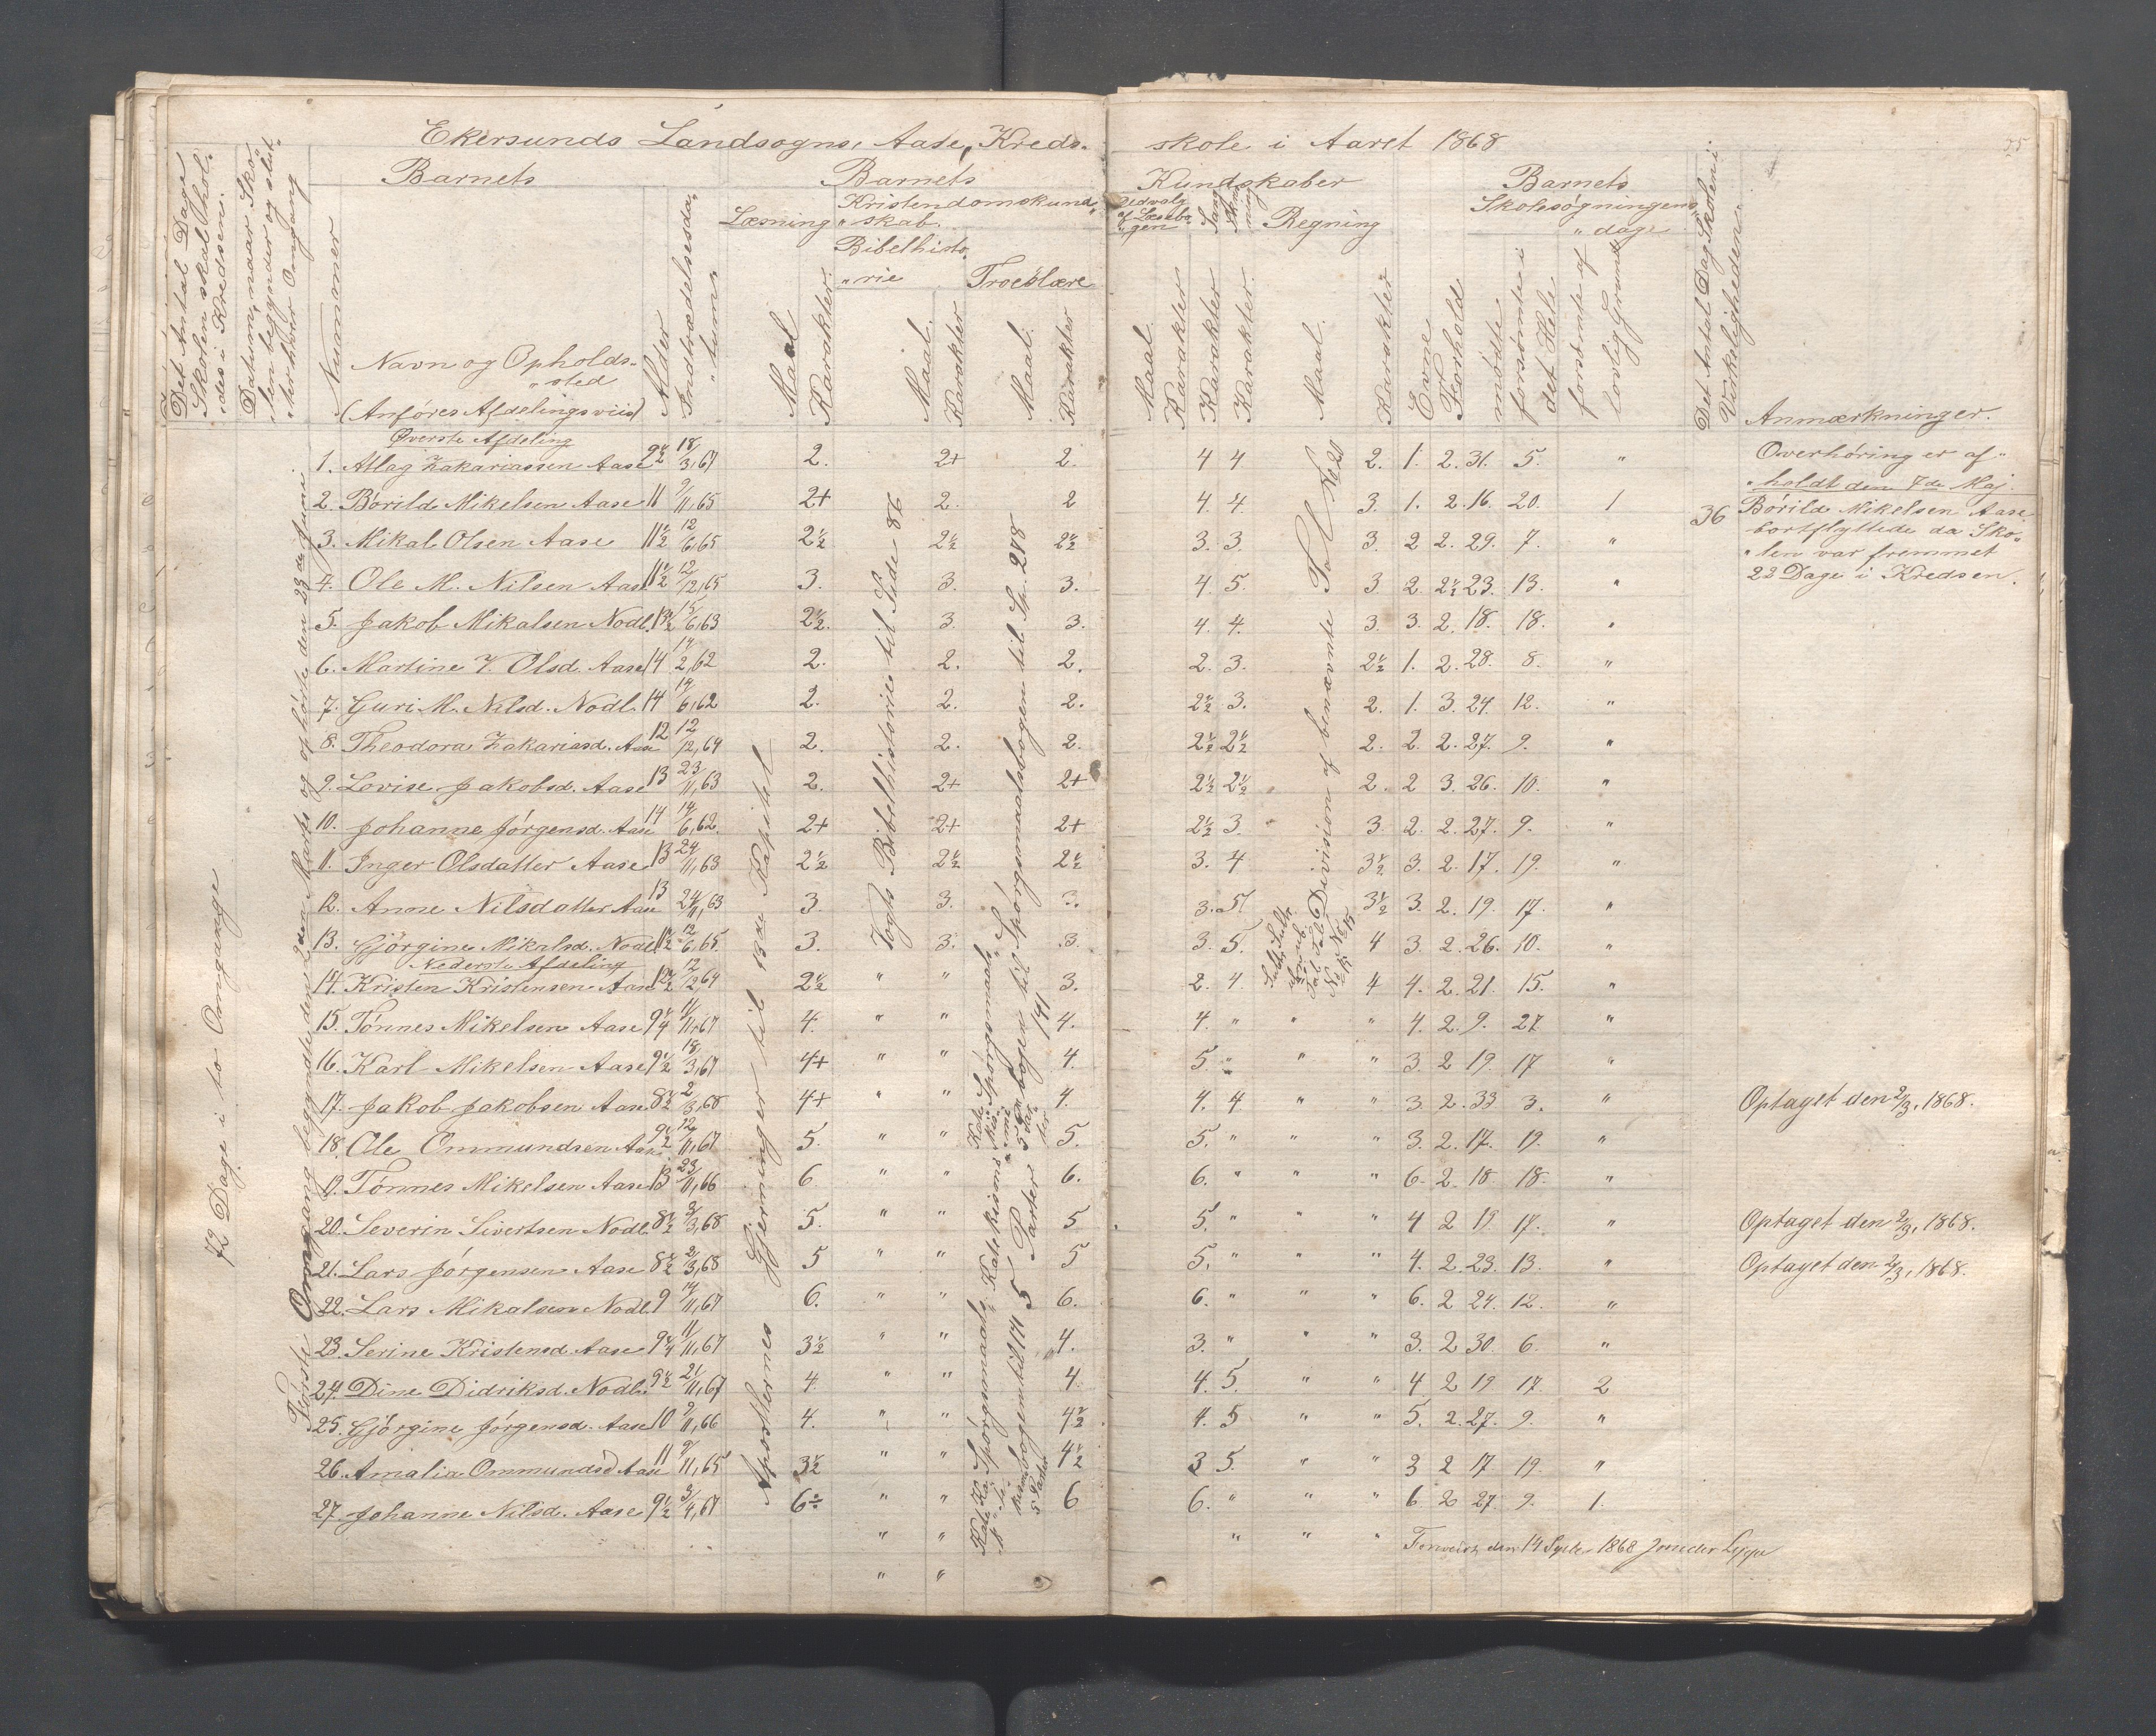 Ekersunds Landsogns, Aase, Kreds- skole i Aaret 1868
35
Det Antal Dage Skolen skal hol- des i Kredsen.
Datum, naar Sko- len begynder og slut- ter hver Omgang
Barnets
Nummer
Navn og Opholds- sted
(Anføres Afdelingsviis)
Alder
Indtrædelsesda- tum
Barnets Kundskaber
Læsning
Maal Karakter
Kristendomskund- skab.
Bibelhisto- rie
Maal. Karakter
Troeslære
Maal. Karakter
Udvalg af Læsebo- gen
Maal Karakter
Sang Karakter
Skriv- ning Karakter.
Regning
Maal. Karakter
Evne
Forhold
Barnets Skolesøgnings- dage
mødte
forsømte i det Hele
forsømte af lovlig Grund
Det Antal Dag Skolen i Virkeligheden
Anmærkninger.
72 Dage i to Omgange
Første Omgang begyndte den 2den Marts og ophørte den 23de Juni.
Apostlernes Gjerninger til 13de Kapitel
Vogts Bibelhistorie til Side 86
Spørgsmaalsbogen til Sp. 248
Division af benævnte Tal No 20
Øverste Afdeling
1. Atlag Zakariassen Aase 9½ 18/3,67 2. 2+ 2. 4 4 2. 1. 2. 31. 5. " Overhøring er af-
holdt den 7de Maj.
2. Børild Mikelsen Aase 11 9/11,65 2+ 2. 2 4. 4. 3. 1. 2. 16. 20. 1 36 Børild Mikelsen Aase
bortflyttede da Sko-
3. Mikal Olsen Aase 11½ 12/6,65 2½ 2½ 2½ 3. 3. 3. 2 2. 29. 7. " len var fremmet
4. Ole M. Nilsen Aase 11½ 12/12,65 3. 3. 3. 4. 5. 3. 2. 2½ 23. 13. " 22 Dage i Kredsen.
5. Jakob Mikalsen Nodl. 13½ 15/6,63 2½. 3. 3. 4. 4. 3. 3. 2. 18. 18. "
6. Martine Z. Olsd. Aase 14 14/2,62 2. 2. 2. 2. 3. 2½ 1. 2. 28. 8. "
7. Guri M. Nilsd. Nodl. 14 14/6,62 2. 2. 2. 2½ 3. 2. 1. 3. 24. 12. "
8. Theodora Zakariasd. Aase 12 12/12,64 2. 2. 2. 2½ 2½ 2. 2. 2. 27. 9. "
9. Lovise Jakobsd. Aase 13 23/11,63 2. 2+ 2+ 2½ 2½ 2. 2 3. 26. 10. "
10. Johanne Jørgensd. Aase 14 14/6,62. 2+ 2+ 2+ 2½ 3. 3. 2. 2. 27. 9. "
11. Inger Olsdatter Aase 13 24/11,63 2½ 2½ 2½ 3. 4 3½ 3. 2. 17. 19. "
12. Anne Nilsdatter Aase 13 24/11,63 3. 3. 3. 3. 5. 3½ 3. 2. 19. 17. "
13. Gjørgine Mikalsd. Nodl. 11½ 12/6,65 3. 3. 3. 3. 5. 4 3. 2. 26. 10. "
Nederste Afdeling
14. Kristen Kristensen Aase 12½ 12/12,64 2½ " " 3. 2. 4. 4 4. 2. 21. 15. "
15. Tønnes Mikelsen Aase 9¼ 11/11,67 4. " " 4. 4. " " " 4. 2. 9. 27 "
16. Karl Mikelsen Aase 9½ 18/3,67 4+ " " 4. 5. " " " 3. 2 19. 17 "
17. Jakob Jakobsen Aase 8½ 2/3,68 4+ " " 4. 4. 4 " " 3. 2. 33 3. " Optaget den 2/3, 1868.
18. Ole Ommundsen Aase 9½ 12/11,67 5. " " 5. 5. " " 3. 2. 17. 19. "
19. Tønnes Mikelsen Aase 13 23/11,66 6. " " 6. 6. " " " 6. 2. 18 18. "
20. Severin Sivertsen Nodl. 8½ 2/3,68 5. " " 5 5. " " " 4 2 19. 17. " Optaget den 2/3, 1868.
21. Lars Jørgensen Aase 8½ 2/3,68 5 " " 5 5. " " " 4. 2. 23. 13. " Optaget den 2/3, 1868.
22. Lars Mikalsen Nodl. 9 14/11,67 6. " " 6. 6. " " " 6. 2 24. 12. "
23. Serine Kristensd. Aase 9¼ 11/11,67 3½ " " 4. 3. " " " 3. 2 30. 6. "
24. Dine Didriksd. Nodl. 9½ 21/11,67 4. " " 4. 4. 5. " " 4 2 19 17. 2
25. Gjørgine Jørgensd. Aase 10 9/11,66 4. " " 4½ 4. 5 " " 5. 2. 27. 9. "
26. Amalia Ommundsd Aase 11 9/11,65 3½ " " 4½ 3 5. " " 3 2 17 19. "
27. Johanne Nilsd. Aase 9½ 3/4,67 6÷ " " 6 6. " " " 6 2 27 9. 1.
den 14 Septe 1868